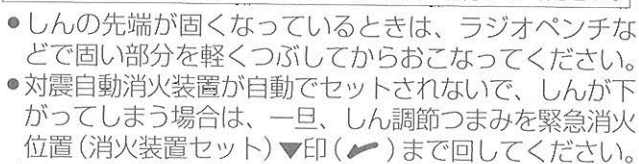 ●しんの先端が固くなっているときは、ラジオペンチな
どで固い部分を軽くつぶしてからおこなってください。
●対震自動消火装置が自動でセットされないで、しんが下
がってしまう場合は、一旦、しん調節つまみを緊急消火
位置(消火装置セット)▼印( )まで回してください。